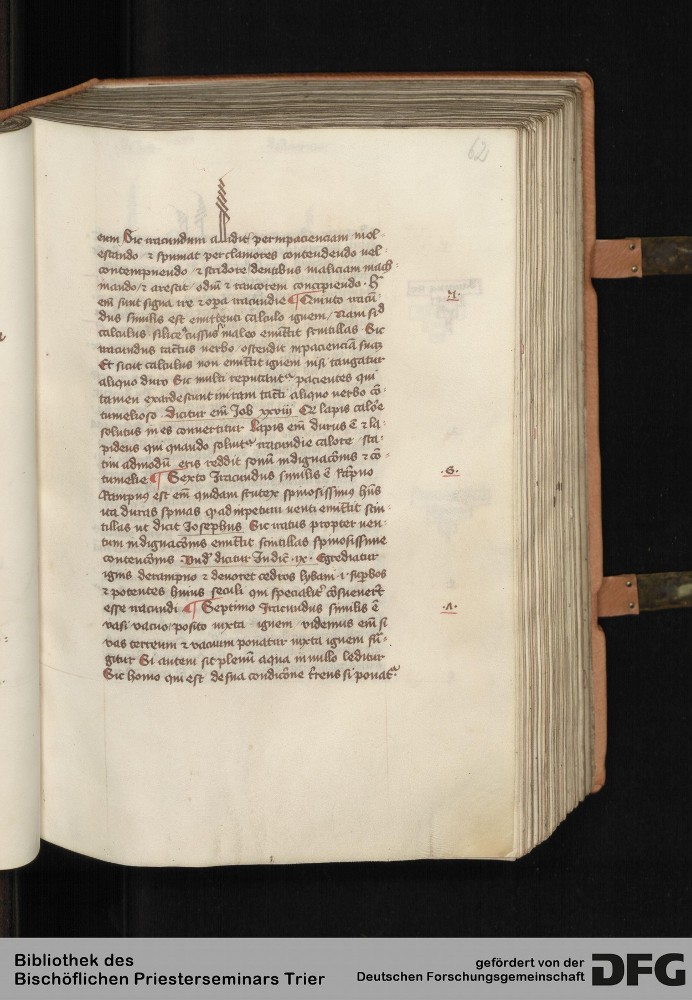 62
eum Sic iracundum allidit per inpacienciam mol-
estando ⁊ spumat per clamores contendendo uel
contempnendo ⁊ stridore dentibus maliciam mach-
inando ⁊ arescit odiū ⁊ rancorem concipiendo.
em̄ sunt signa ire ⁊ opera iracundie ¶ Quinto iracū-
dus similis est emittenti calculo ignem / Nam sic
calculus silice maleo emittit scintillas Sic
iracundus tactus uerbo ostendit inpacienciā suā
Et sicut calculus non emittit ignem nisi tangatur
aliquo duro Sic multi reputant pacientes qui
tamen exardescunt in iram tacti aliquo uerbo cō-
tumelioso . Dicitur em̄ Job xxviij lapis calōe
solutus in es conuertitur Lapis em̄ durus ē ⁊ la-
pideus qui quando soluit iracundie calore sta-
tim admodū eris reddit sonū indignacōnis ⁊ cō-
tumelie ¶ Sexto Iracundus similis ē Rāpno
Rampnus est em̄ quidam frutex spinosissimus hn̄s
ita duras spinas quod inpetum uenti emittit scin-
tillas ut dicit Josephus Sic iratus propter uen-
tum indignacōnis emittit scintillas spinosissime
contencōnis . Vnd dicitur Iudic .ix. Egrediatur
ignis de rampno ⁊ deuoret cedros lybani .i. supbos
⁊ potentes huius seculi qui specialit cōsueuert
esse iracundi ¶ Septimo Iracundus similis ē
uasi uacuo posito iuxta ignem uidemus em̄ si
uas terreum ⁊ uacuum ponatur iuxta ignem frā-
gitur Si autem sit plenū aqua in nullo leditur
Sic homo qui est de sua condicōne t̄rens si ponat
.G.
Bibliothek des
Bischöflichen Priesterseminars Trier
gefördert von der
Deutschen Forschungsgemeinschaft
DFG